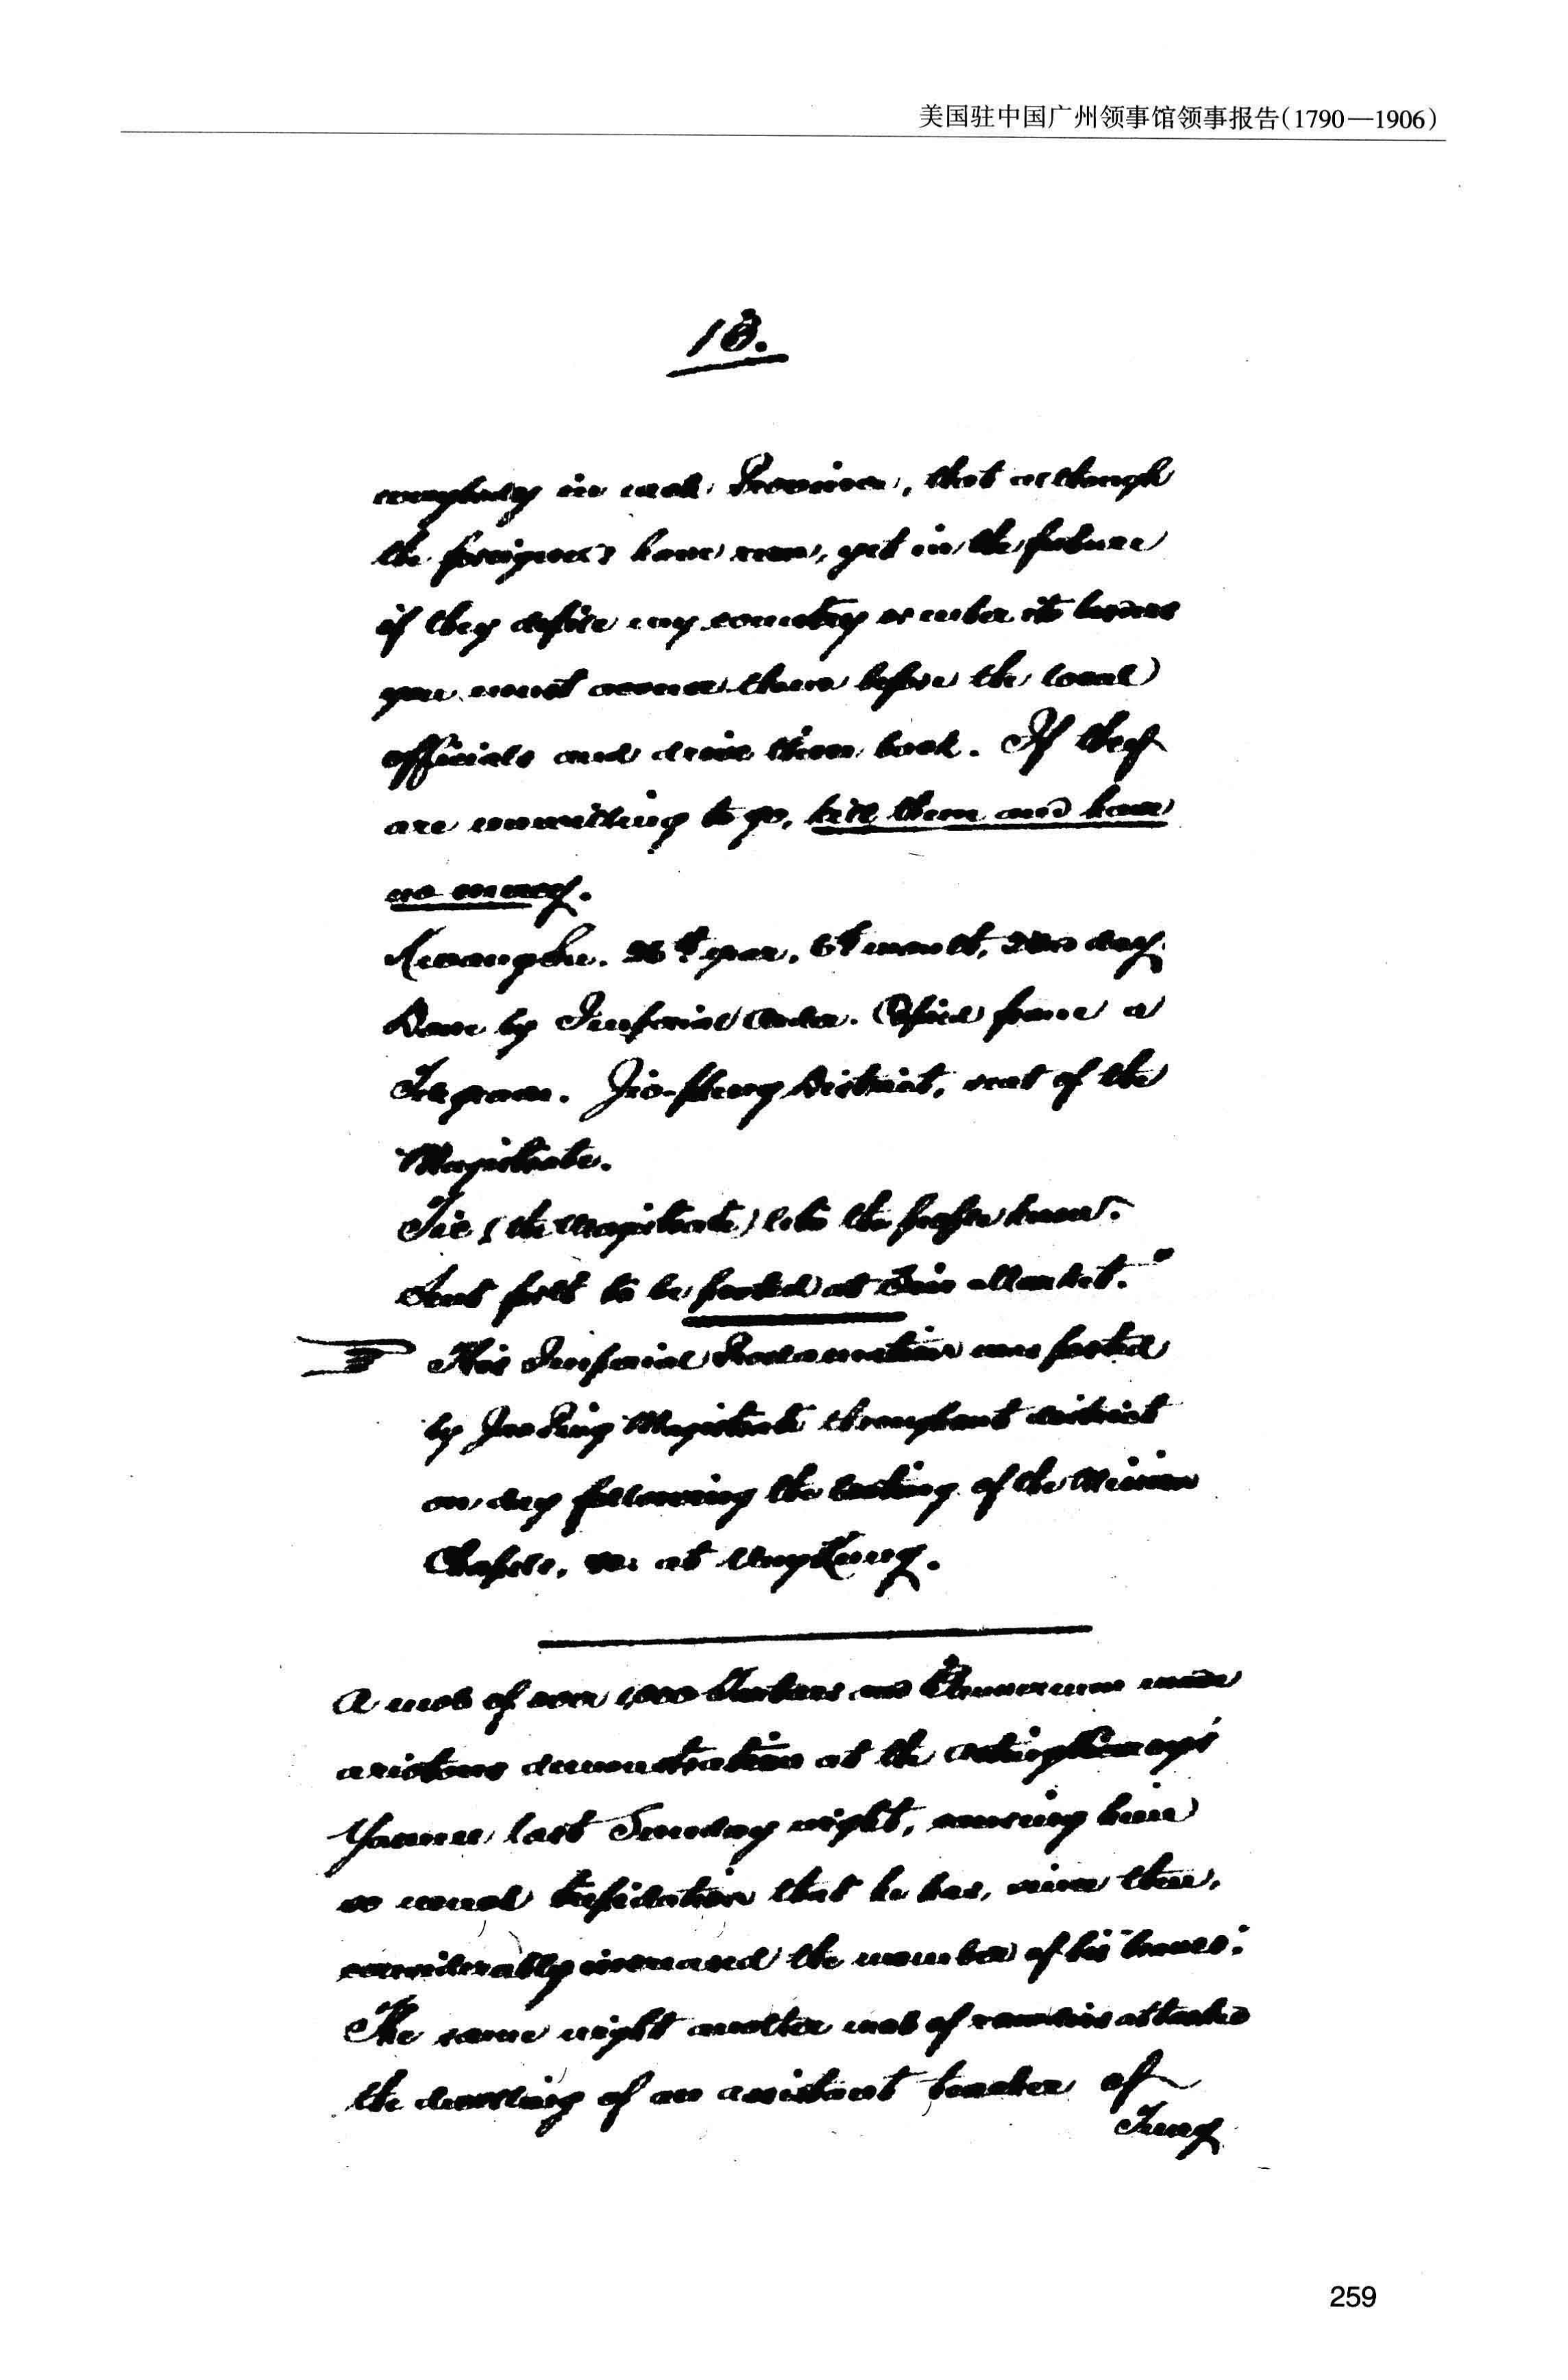 美国驻中国广州领事馆领事报告(1790—1906)
18.
in each Province, that although
the foreigners have, yet in the future
if they defile my country or enter its
you must them before the local
officials and drive them back. If they
are unwilling to go, kill them and have
no mercy.
Kwangshu. 26th year, 6th month, 2nd day
by Imperial Order. Copied from a
District, seat of the
Magistrate.
(the Magistrate) lets the people know.
Sent forth to be posted at Market."
This Imperial Proclamation was posted
by Magistrate throughout district
on day following the looting of the Mission
Chapels, &c at
A mob of over 1,000 and made
a riotous demonstration at the
Yamen last Sunday night, causing him
so much trepidation that he has, since then,
considerably increased the number of his "braves."
The same night another mob of attacked
the dwelling of an assistant teacher of
Tung
259